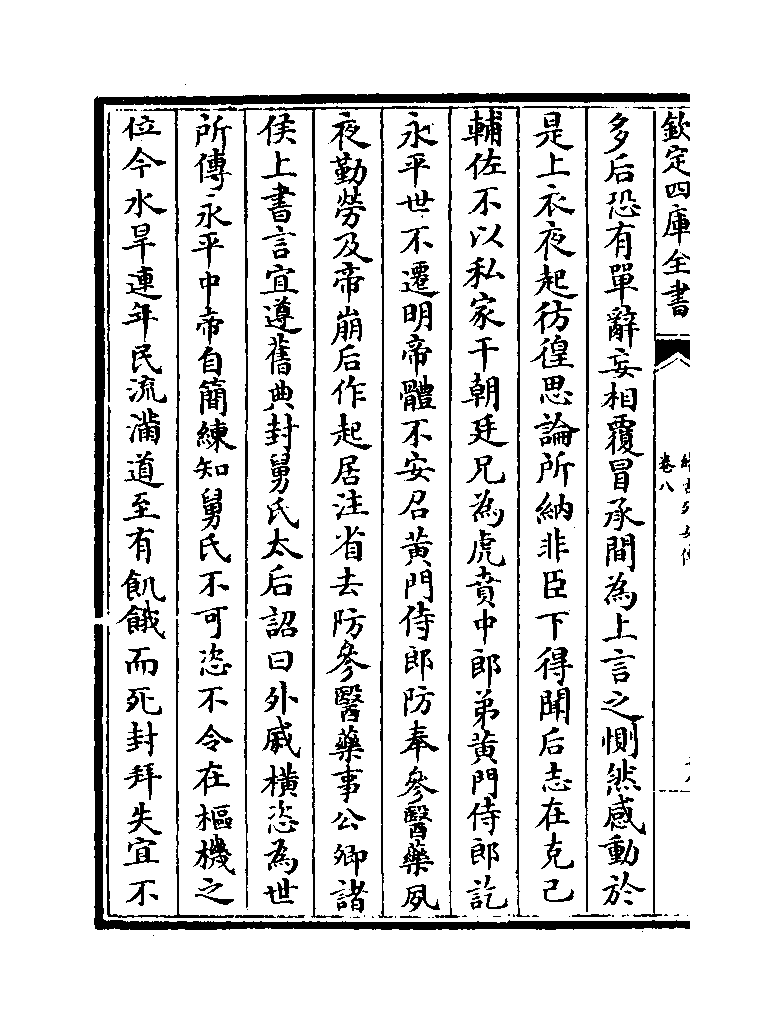 欽定四庫全書
卷八
多后恐有單辭妄相覆冒承間為上言之惻然感動於
是上衣夜起彷徨思論所納非臣下得聞后志在克己
輔佐不以私家干朝廷兄為虎賁中郎弟黃門侍郎訖
永平世不遷明帝體不安召黃門侍郎防奉參醫藥夙
夜勤勞及帝崩后作起居注省去防參醫藥事公卿諸
侯上書言宜遵舊典封舅氏太后詔曰外戚橫恣為世
所傳永平中帝自簡練知舅氏不可恣不令在樞機之
位今水旱連年民流滿道至有飢餓而死封拜失宜不